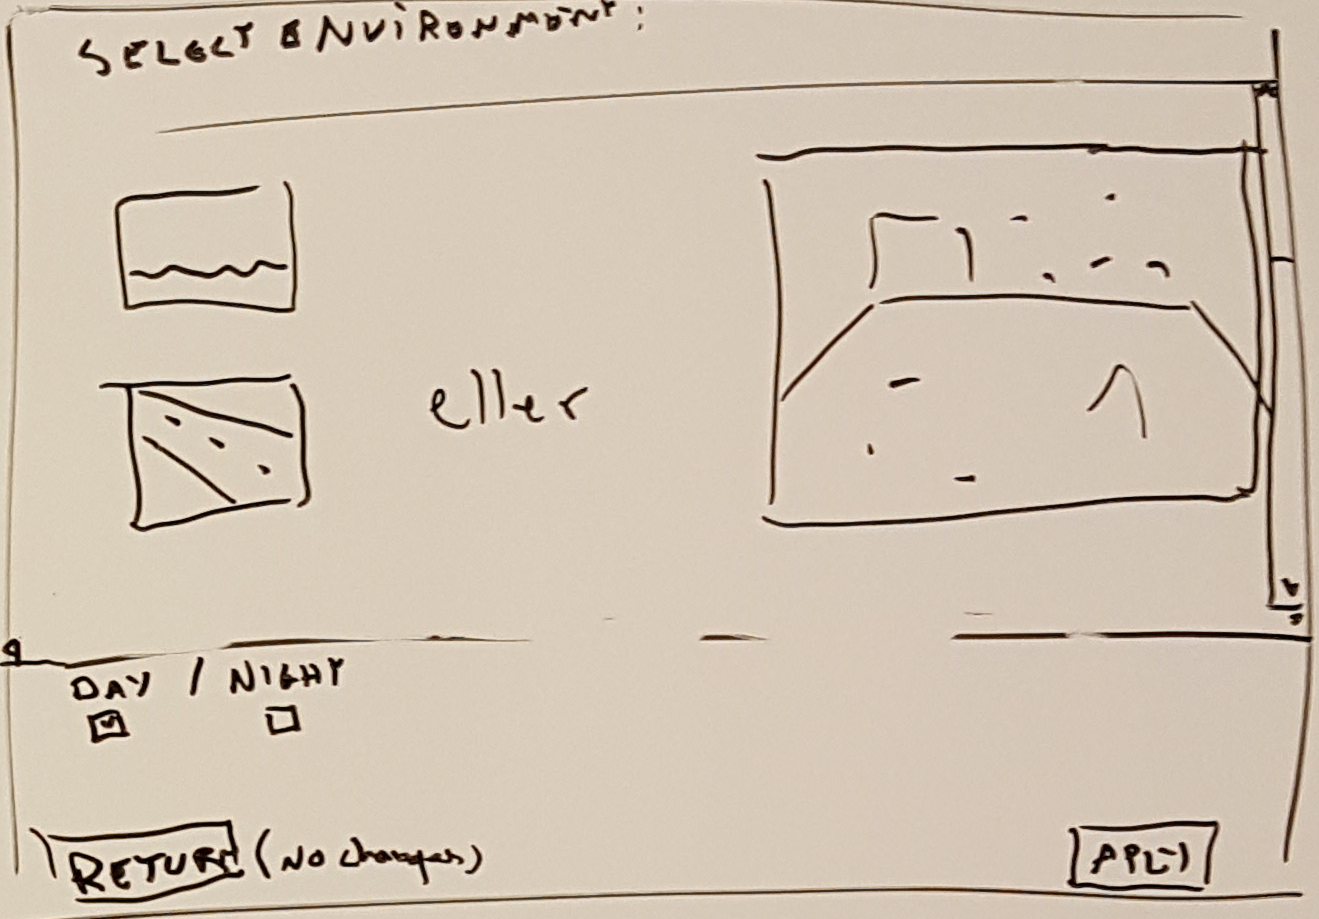 SELECT ENVIRONMENT:
eller
DAY / NIGHT
RETURN (No changes)
APLY